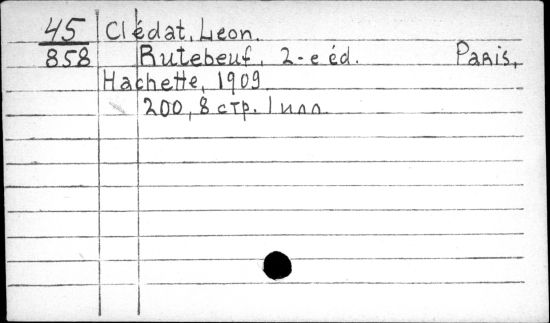 45 Clédat, Leon.
858 Rutebeuf. 2-e éd. Paris,
Hachette, 1909.
200, 8 стр. 1 илл.